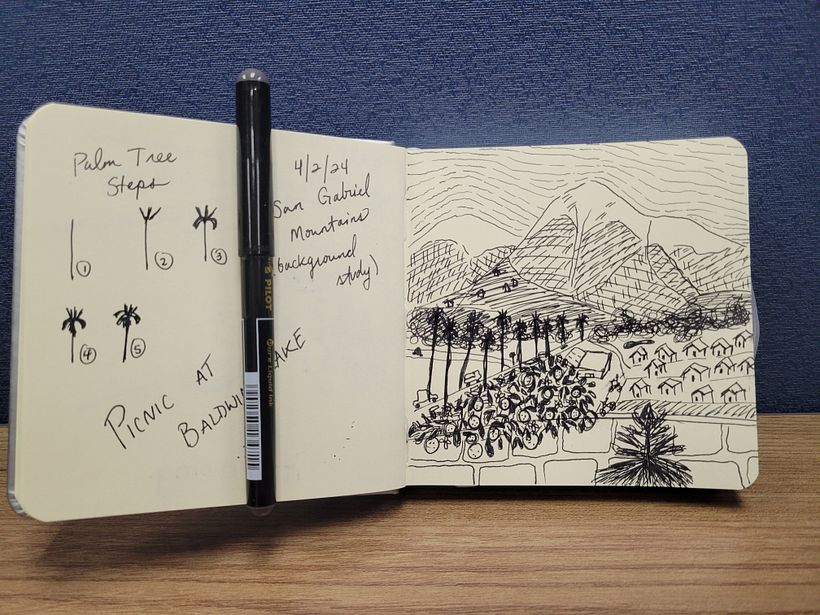 Palm Tree
Steps
1 2 3
4 5
PICNIC AT
BALDWIN LAKE
4/2/24
San Gabriel
Mountains
(background
study)
PILOT
Liquid Ink